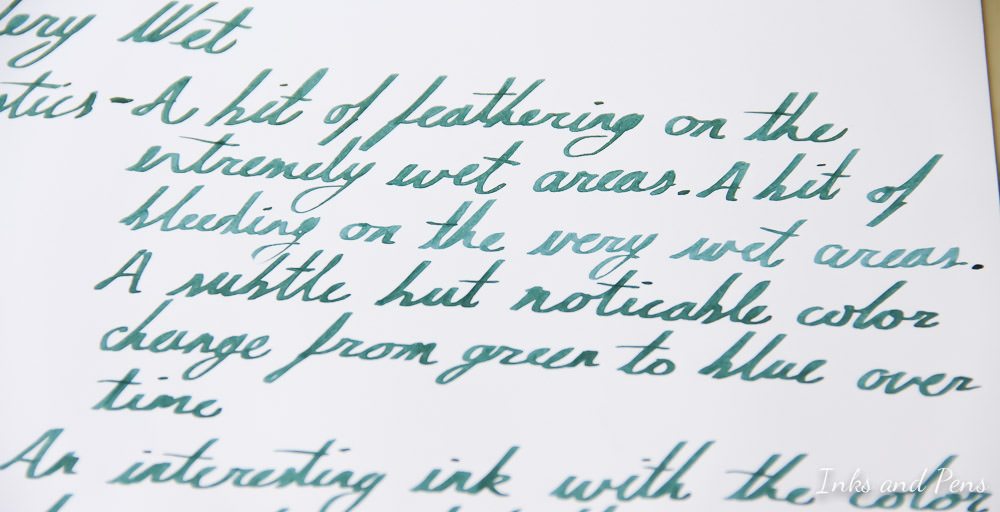 ery Wet
stics - A bit of feathering on the
extremely wet areas. A bit of
bleeding on the very wet areas.
A subtle but noticable color
change from green to blue over
time
An interesting ink with the color
Inks and Pens